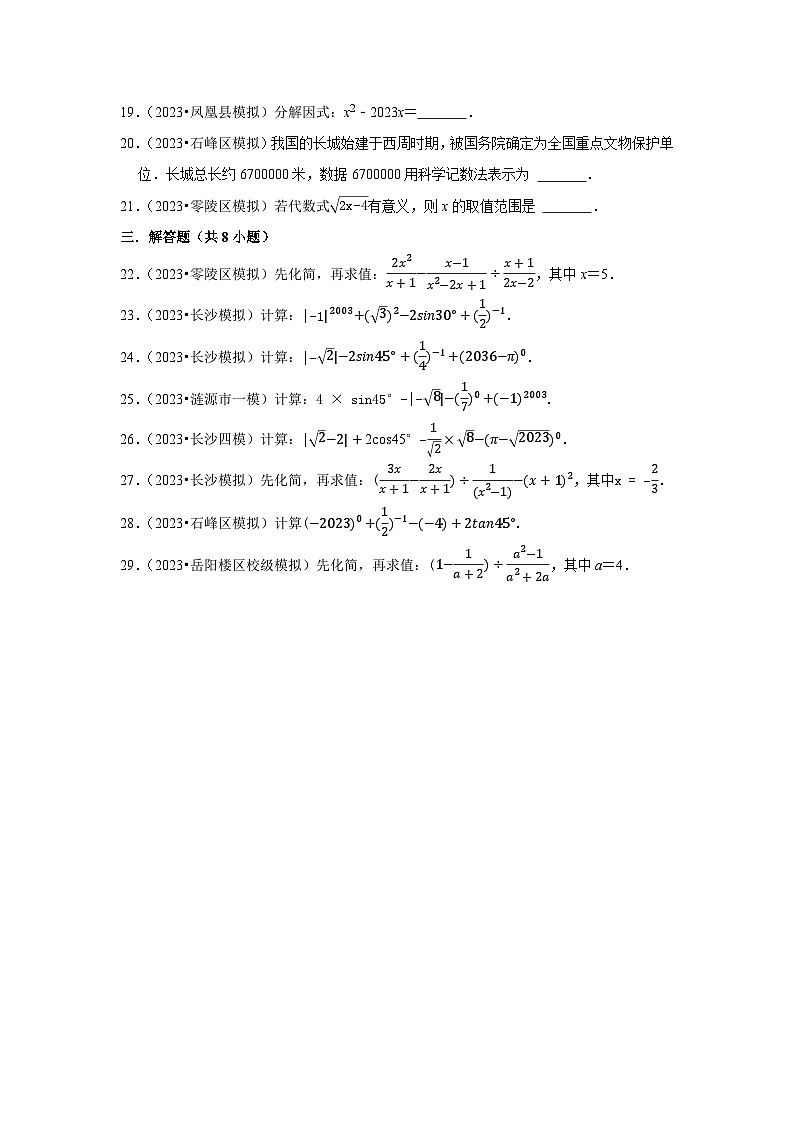 19.(2023•凤凰县模拟)分解因式:x²﹣2023x=_______.
20.(2023•石峰区模拟)我国的长城始建于西周时期,被国务院确定为全国重点文物保护单
位.长城总长约 6700000 米,数据 6700000 用科学记数法表示为 _______.
21.(2023•零陵区模拟)若代数式√(2x−4)有意义,则 x 的取值范围是 _______.
三.解答题(共 8 小题)
22.(2023•零陵区模拟)先化简,再求值:2x²/(x+1)−(x−1)/(x²−2x+1)÷(x+1)/(2x−2),其中 x=5.
23.(2023•长沙模拟)计算:|−1|²⁰⁰³+(√3)²−2sin30°+(1/2)⁻¹.
24.(2023•长沙模拟)计算:|−√2|−2sin45°+(1/4)⁻¹+(2036−π)⁰.
25.(2023•涟源市一模)计算:4 × sin45°﹣|−√8|−(1/7)⁰+(−1)²⁰⁰³.
26.(2023•长沙四模)计算:|√2−2|+2cos45°﹣1/√2×√8−(π−√2023)⁰.
27.(2023•长沙模拟)先化简,再求值:(3x/(x+1)−2x/(x+1))÷1/(x²−1)−(x+1)²,其中x = −2/3.
28.(2023•石峰区模拟)计算(−2023)⁰+(1/2)⁻¹−(−4)+2tan45°.
29.(2023•岳阳楼区校级模拟)先化简,再求值:(1−1/(a+2))÷(a²−1)/(a²+2a),其中 a=4.